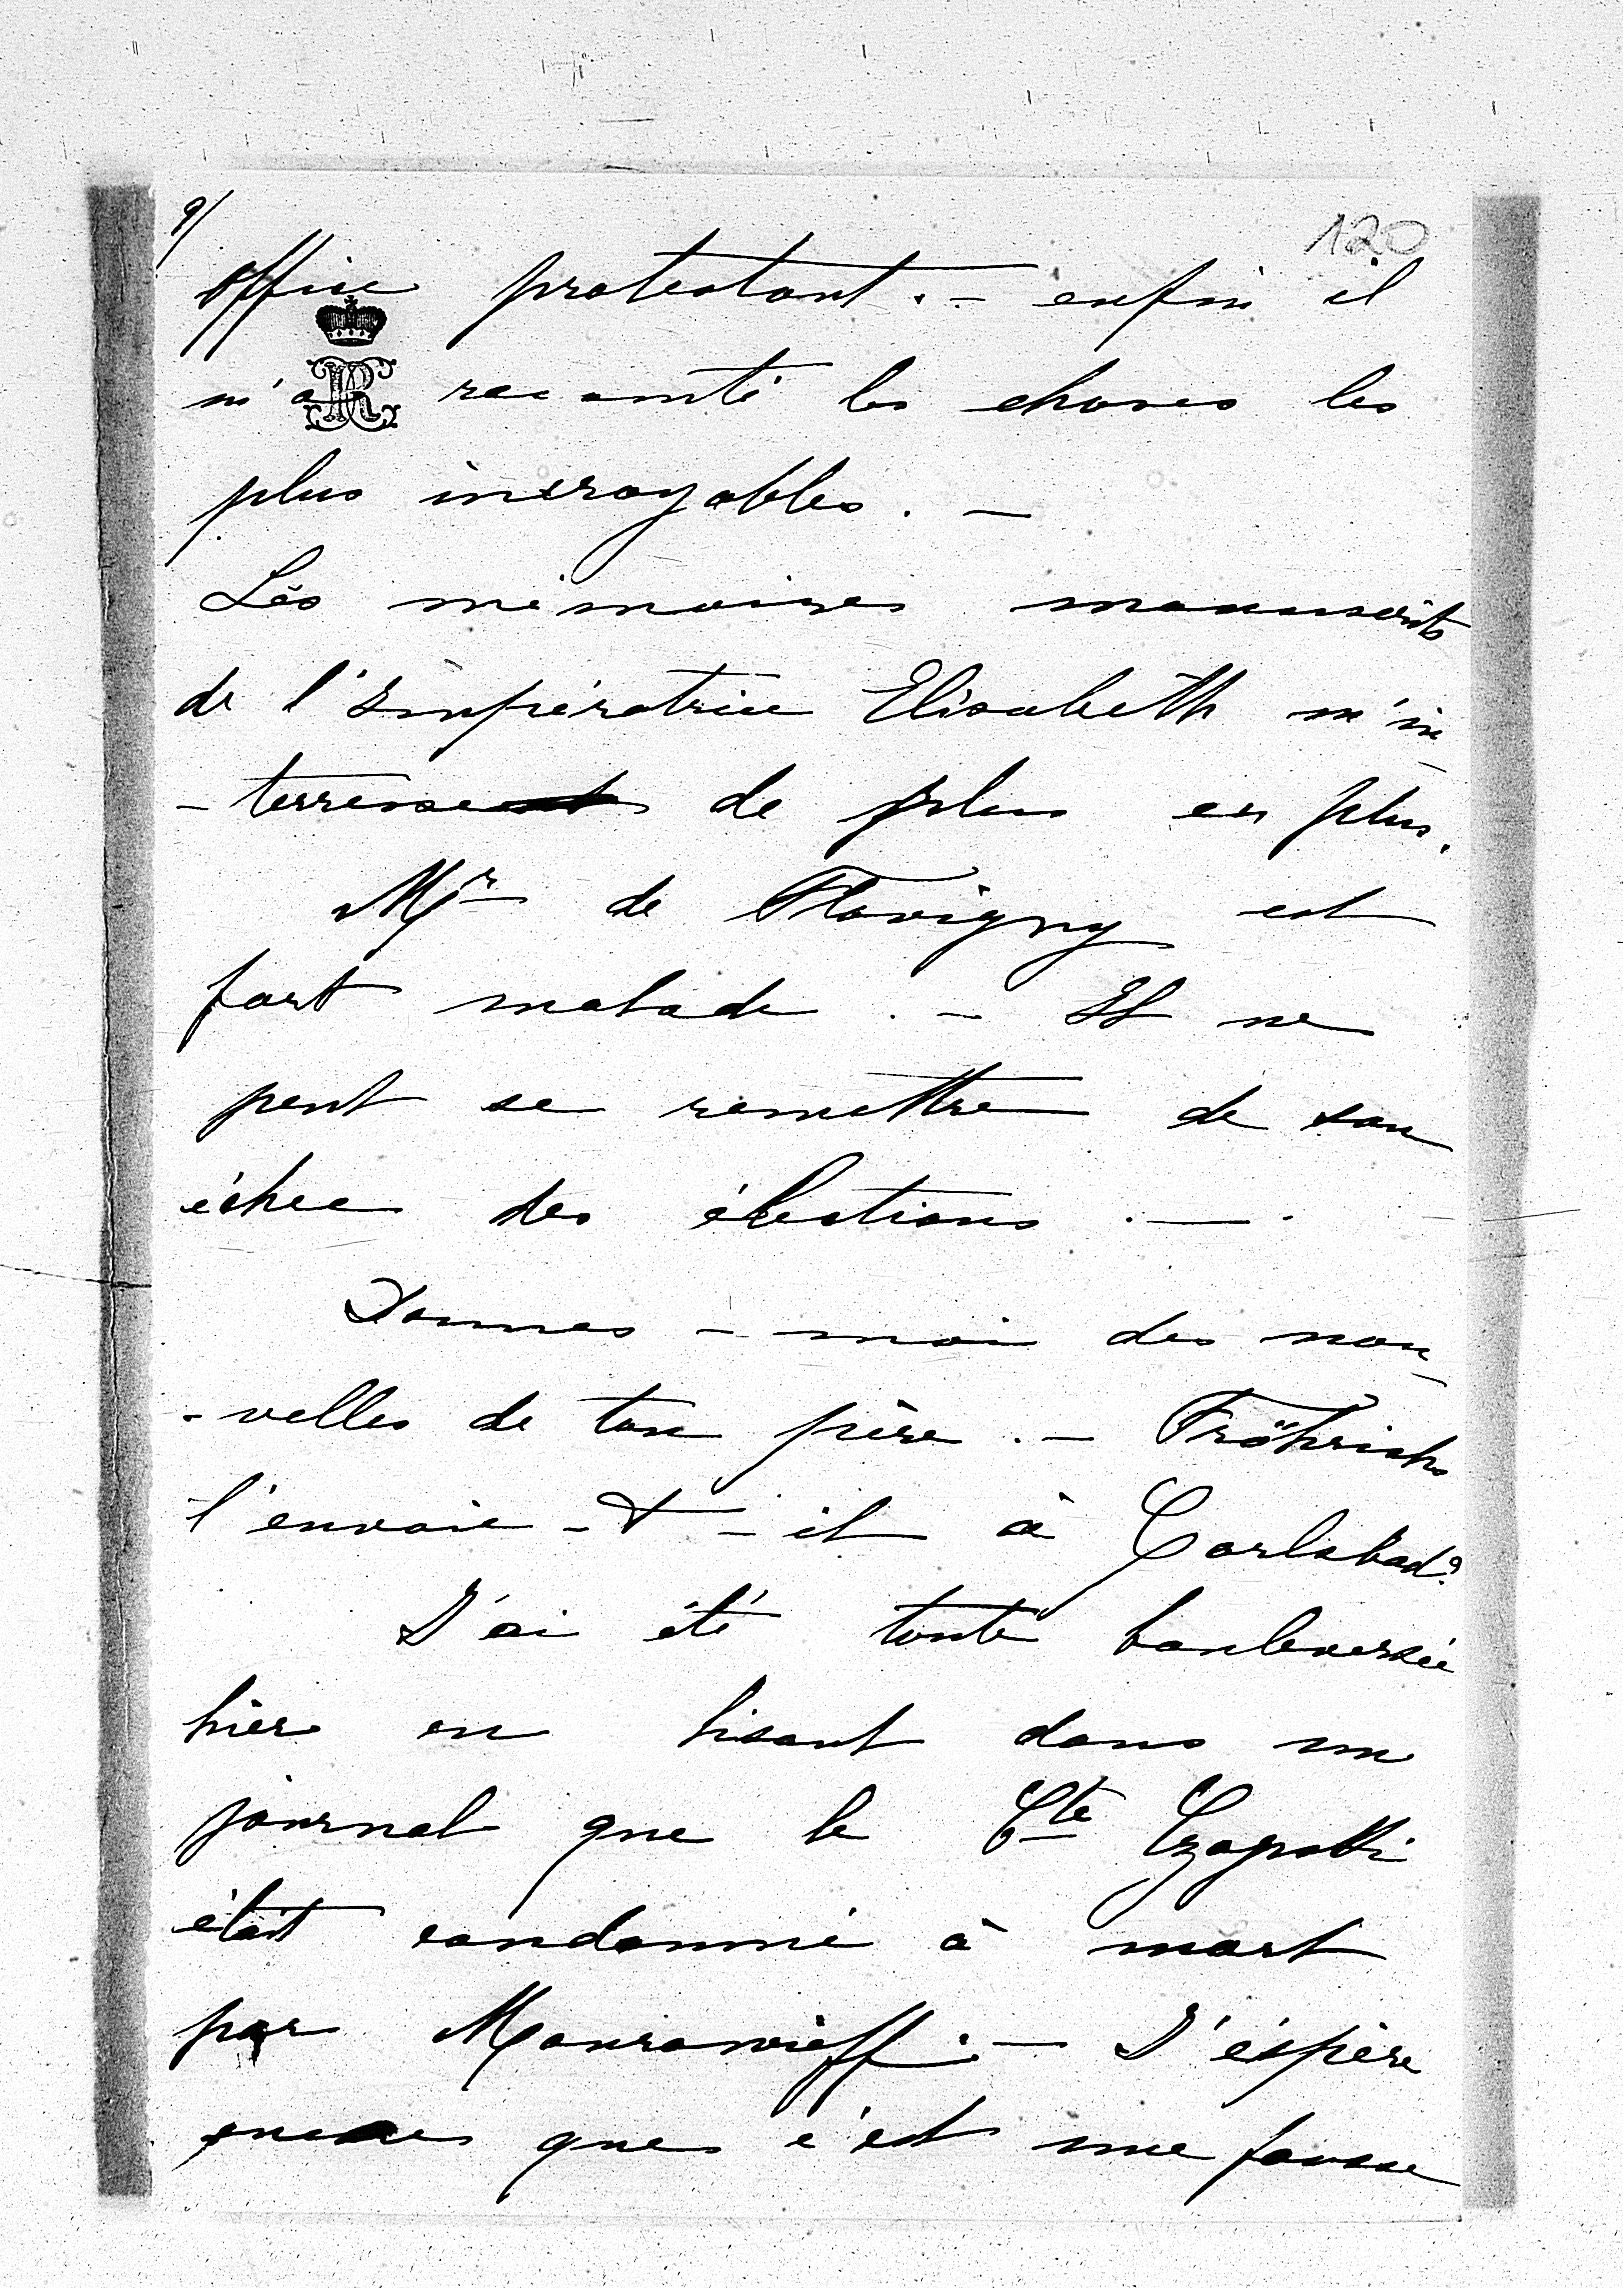 9/
120
office protestant. — enfin il
m'a raconté les choses les
plus incroyables. —
Les mémoires manuscrits
de l'Impératrice Elisabeth m'in
- terressent de plus en plus.
Mr de Flavigny est
fort malade. — Il ne
peut se remettre de son
échec des élections. —.
Donnes - moi des nou
- velles de ton père. — Fröhrichs
l'envoie - t - il à Carlsbad?
J'ai été toute bouleversée
hier en lisant dans un
journal que le Cte Czapski
était condamné à mort
par Mourawieff. — J'éspère
encore que c'est une fausse